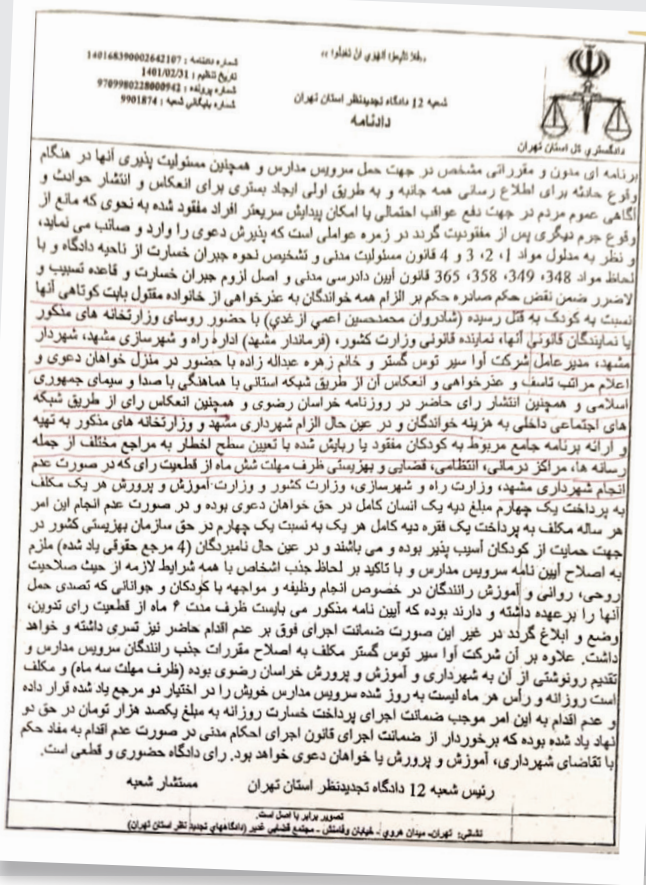 «فلا تتبعوا الهوي ان تعدلوا»
شماره دادنامه : 140168390002642107
تاریخ تنظیم : 1401/02/31
شماره پرونده : 9709980228000942
شماره بایگانی شعبه : 9901874
شعبه 12 دادگاه تجدیدنظر استان تهران
دادنامه
دادگستري کل استان تهران
برنامه ای مدون و مقرراتی مشخص در جهت حمل سرویس مدارس و همچنین مسئولیت پذیری آنها در هنگام
وقوع حادثه برای اطلاع رسانی همه جانبه و به طریق اولی ایجاد بستری برای انعکاس و انتشار حوادث و
آگاهی عموم مردم در جهت دفع عواقب احتمالی یا امکان پیدایش سریعتر افراد مفقود شده به نحوی که مانع از
وقوع جرم دیگری پس از مفقودیت گردد در زمره عواملی است که پذیرش دعوی را وارد و صائب می نماید،
و نظر به مدلول مواد 1، 2، 3 و 4 قانون مسئولیت مدنی و تشخیص نحوه جبران خسارت از ناحیه دادگاه و با
لحاظ مواد 348، 349، 358، 365 قانون آیین دادرسی مدنی و اصل لزوم جبران خسارت و قاعده تسبیب و
لاضرر ضمن نقض حکم صادره حکم بر الزام همه خواندگان به عذرخواهی از خانواده مقتول بابت کوتاهی آنها
نسبت به کودک به قتل رسیده (شادروان محمدحسین اعمی ازغدی) با حضور روسای وزارتخانه های مذکور
یا نمایندگان قانونی آنها، نماینده قانونی وزارت کشور، (فرماندار مشهد) اداره راه و شهرسازی مشهد، شهردار
مشهد، مدیرعامل شرکت آوا سیر توس گستر و خانم زهره عبداله زاده با حضور در منزل خواهان دعوی و
اعلام مراتب تاسف و عذرخواهی و انعکاس آن از طریق شبکه استانی با هماهنگی با صدا و سیمای جمهوری
اسلامی و همچنین انتشار رای حاضر در روزنامه خراسان رضوی و همچنین انعکاس رای از طریق شبکه
های اجتماعی داخلی به هزینه خواندگان و در عین حال الزام شهرداری مشهد و وزارتخانه های مذکور به تهیه
و ارائه برنامه جامع مربوط به کودکان مفقود یا ربایش شده با تعیین سطح اخطار به مراجع مختلف از جمله
رسانه ها، مراکز درمانی، انتظامی، قضایی و بهزیستی ظرف مهلت شش ماه از قطعیت رای که در صورت عدم
انجام شهرداری مشهد، وزارت راه و شهرسازی، وزارت کشور و وزارت آموزش و پرورش هر یک مکلف
به پرداخت یک چهارم مبلغ دیه یک انسان کامل در حق خواهان دعوی بوده و در صورت عدم انجام این امر
هر ساله مکلف به پرداخت یک فقره دیه کامل هر یک به نسبت یک چهارم در حق سازمان بهزیستی کشور در
جهت حمایت از کودکان آسیب پذیر بوده و می باشند و در عین حال نامبردگان (4 مرجع حقوقی یاد شده) ملزم
به اصلاح آیین نامه سرویس مدارس و با تاکید بر لحاظ جذب اشخاص با همه شرایط لازمه از حیث صلاحیت
روحی، روانی و آموزش رانندگان در خصوص انجام وظیفه و مواجهه با کودکان و جوانانی که تصدی حمل
آنها را برعهده داشته و دارند بوده که آیین نامه مذکور می بایست ظرف مدت ۶ ماه از قطعیت رای تدوین،
وضع و ابلاغ گردد در غیر این صورت ضمانت اجرای فوق بر عدم اقدام حاضر نیز تسری داشته و خواهد
داشت. علاوه بر آن شرکت آوا سیر توس گستر مکلف به اصلاح مقررات جذب رانندگان سرویس مدارس و
تقدیم رونوشتی از آن به شهرداری و آموزش و پرورش خراسان رضوی بوده (ظرف مهلت سه ماه) و مکلف
است روزانه و رأس هر ماه لیست به روز شده سرویس مدارس خویش را در اختیار دو مرجع یاد شده قرار داده
و عدم اقدام به این امر موجب ضمانت اجرای پرداخت خسارت روزانه به مبلغ یکصد هزار تومان در حق دو
نهاد یاد شده بوده که برخوردار از ضمانت اجرای قانون اجرای احکام مدنی در صورت عدم اقدام به مفاد حکم
با تقاضای شهرداری، آموزش و پرورش یا خواهان دعوی خواهد بود. رای دادگاه حضوری و قطعی است.
رئیس شعبه 12 دادگاه تجدیدنظر استان تهران مستشار شعبه
تصویر برابر با اصل است.
نشانی: تهران- میدان هروی - خیابان وفامنش - مجتمع قضایی غدیر (دادگاههای تجدید نظر استان تهران)